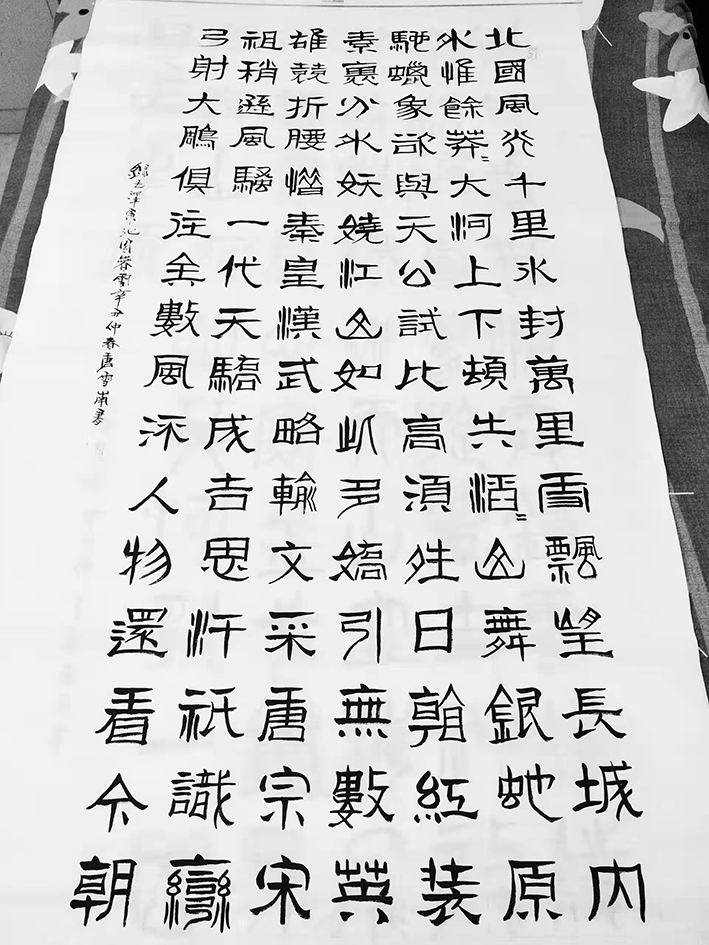 北國風光千里冰封萬里雪飄望長城内
外惟餘莽〻大河上下頓失滔〻山舞銀蛇原
馳蠟象欲與天公試比高須晴日看紅装
素裹分外妖嬈江山如此多嬌引無數英
雄競折腰惜秦皇漢武略輸文采唐宗宋
祖稍遜風騷一代天驕成吉思汗祇識彎
弓射大鵰俱往矣數風流人物還看今朝
錄毛澤東沁園春雪辛丑仲春唐雪嵐書